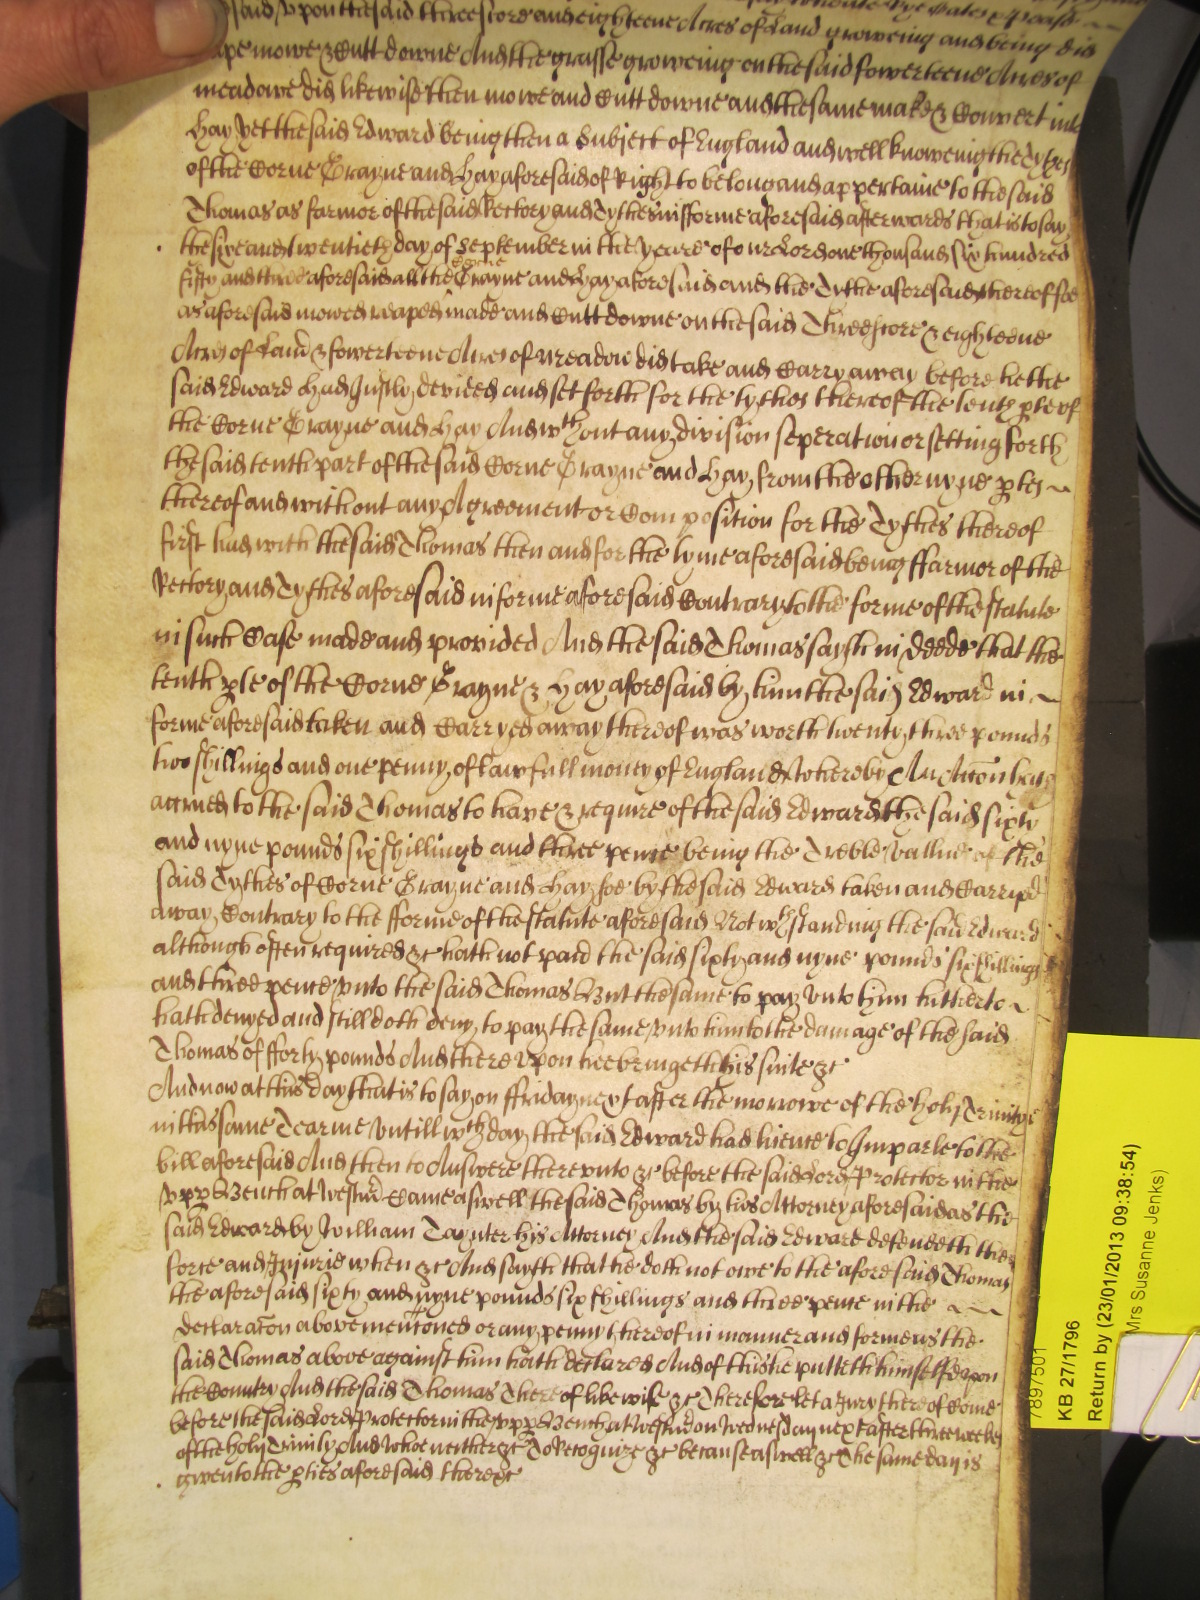 said vpon the said threescore and eighteene Acres of Land groweing and being did
mowe & Cutt downe And the grasse groweing on the said fowerteene Acres of
meadowe did likewise then mowe and Cutt downe and the same make & Convert into
Hay yet the said Edward being then a Subject of England and well knoweing the Tythes
of the Corne Grayne and Hay aforesaid of Right to belong and appertaine to the said
Thomas as farmor of the said Rectory and Tythes in forme aforesaid afterwards that is to say
the sixe and twentieth day of September in the yeare of our Lord one thousand six hundred
fifty and three aforesaid all the Corne Grayne and Hay aforesaid and the Tythe aforesaid thereof soe
as aforesaid mowed reaped made and Cutt downe on the said Threescore & eighteene
Acres of Land & fowerteene Acres of meadow did take and Carry away before hee the
said Edward had Justly devided and set forth for the tythes thereof the tenth pte of
the Corne Grayne and Hay And wthout any division seperation or setting forth
the said tenth part of the said Corne Grayne and Hay from the other nyne ptes
thereof and without any Agreement or Composition for the Tythes thereof
first had with the said Thomas then and for the tyme aforesaid being ffarmor of the
Rectory and Tythes aforesaid in forme aforesaid Contrary to the forme of the Statute
in such Case made and provided And the said Thomas sayth in deede that the
tenth pte of the Corne Grayne & Hay aforesaid by him the said Edward in
forme aforesaid taken and Carryed away thereof was worth twenty three pounds
two shillings and one penny of lawfull money of England Whereby An Accon hath
accrued to the said Thomas to have & require of the said Edward the said sixty
and nyne pounds six shillings and three pence being the Treble vallue of the
said Tythes of Corne Grayne and Hay soe by the said Edward taken and Carryed
away Contrary to the fforme of the Statute aforesaid Notwthstanding the said Edward
although often required &c hath not paid the said sixty and nyne pounds six shillings
and three pence vnto the said Thomas But the same to pay vnto him hitherto
hath denyed and still doth deny to pay the same vnto him to the damage of the said
Thomas of fforty pounds And there vpon hee bringeth his suite &c
And now at this day that is to say on ffriday next after the morrowe of the Holy Trinitye
in this same Tearme vntill wch day the said Edward had licence to Imparle to the
bill aforesaid And then to Answere there vnto &c before the said Lord Protector in the
vpp Bench at Westmr Came aswell the said Thomas by his Attorney aforesaid as the
said Edward by William Taynter his Attorney And the said Edward defendeth the
force and Injurie when &c And sayth that he doth not owe to the aforesaid Thomas
the aforesaid sixty and nyne pounds six shillings and three pence in the
declaracon above menconed or any penny thereof in manner and forme as the
said Thomas above against him hath declared And of this he putteth himselfe vpon
the Country And the said Thomas Thereof likewise &c Therefore let a Jury thereof Come
before the said Lord Protector in the vpp Bench at Westmr on Wednesday next after three weekes
of the holy Trinity And whoe neither &c To Recognize &c because aswell &c The same day is
given to the pties aforesaid there &c
7897501
KB 27/1796
Return by (23/01/2013 09:38:54)
Mrs Susanne Jenks)